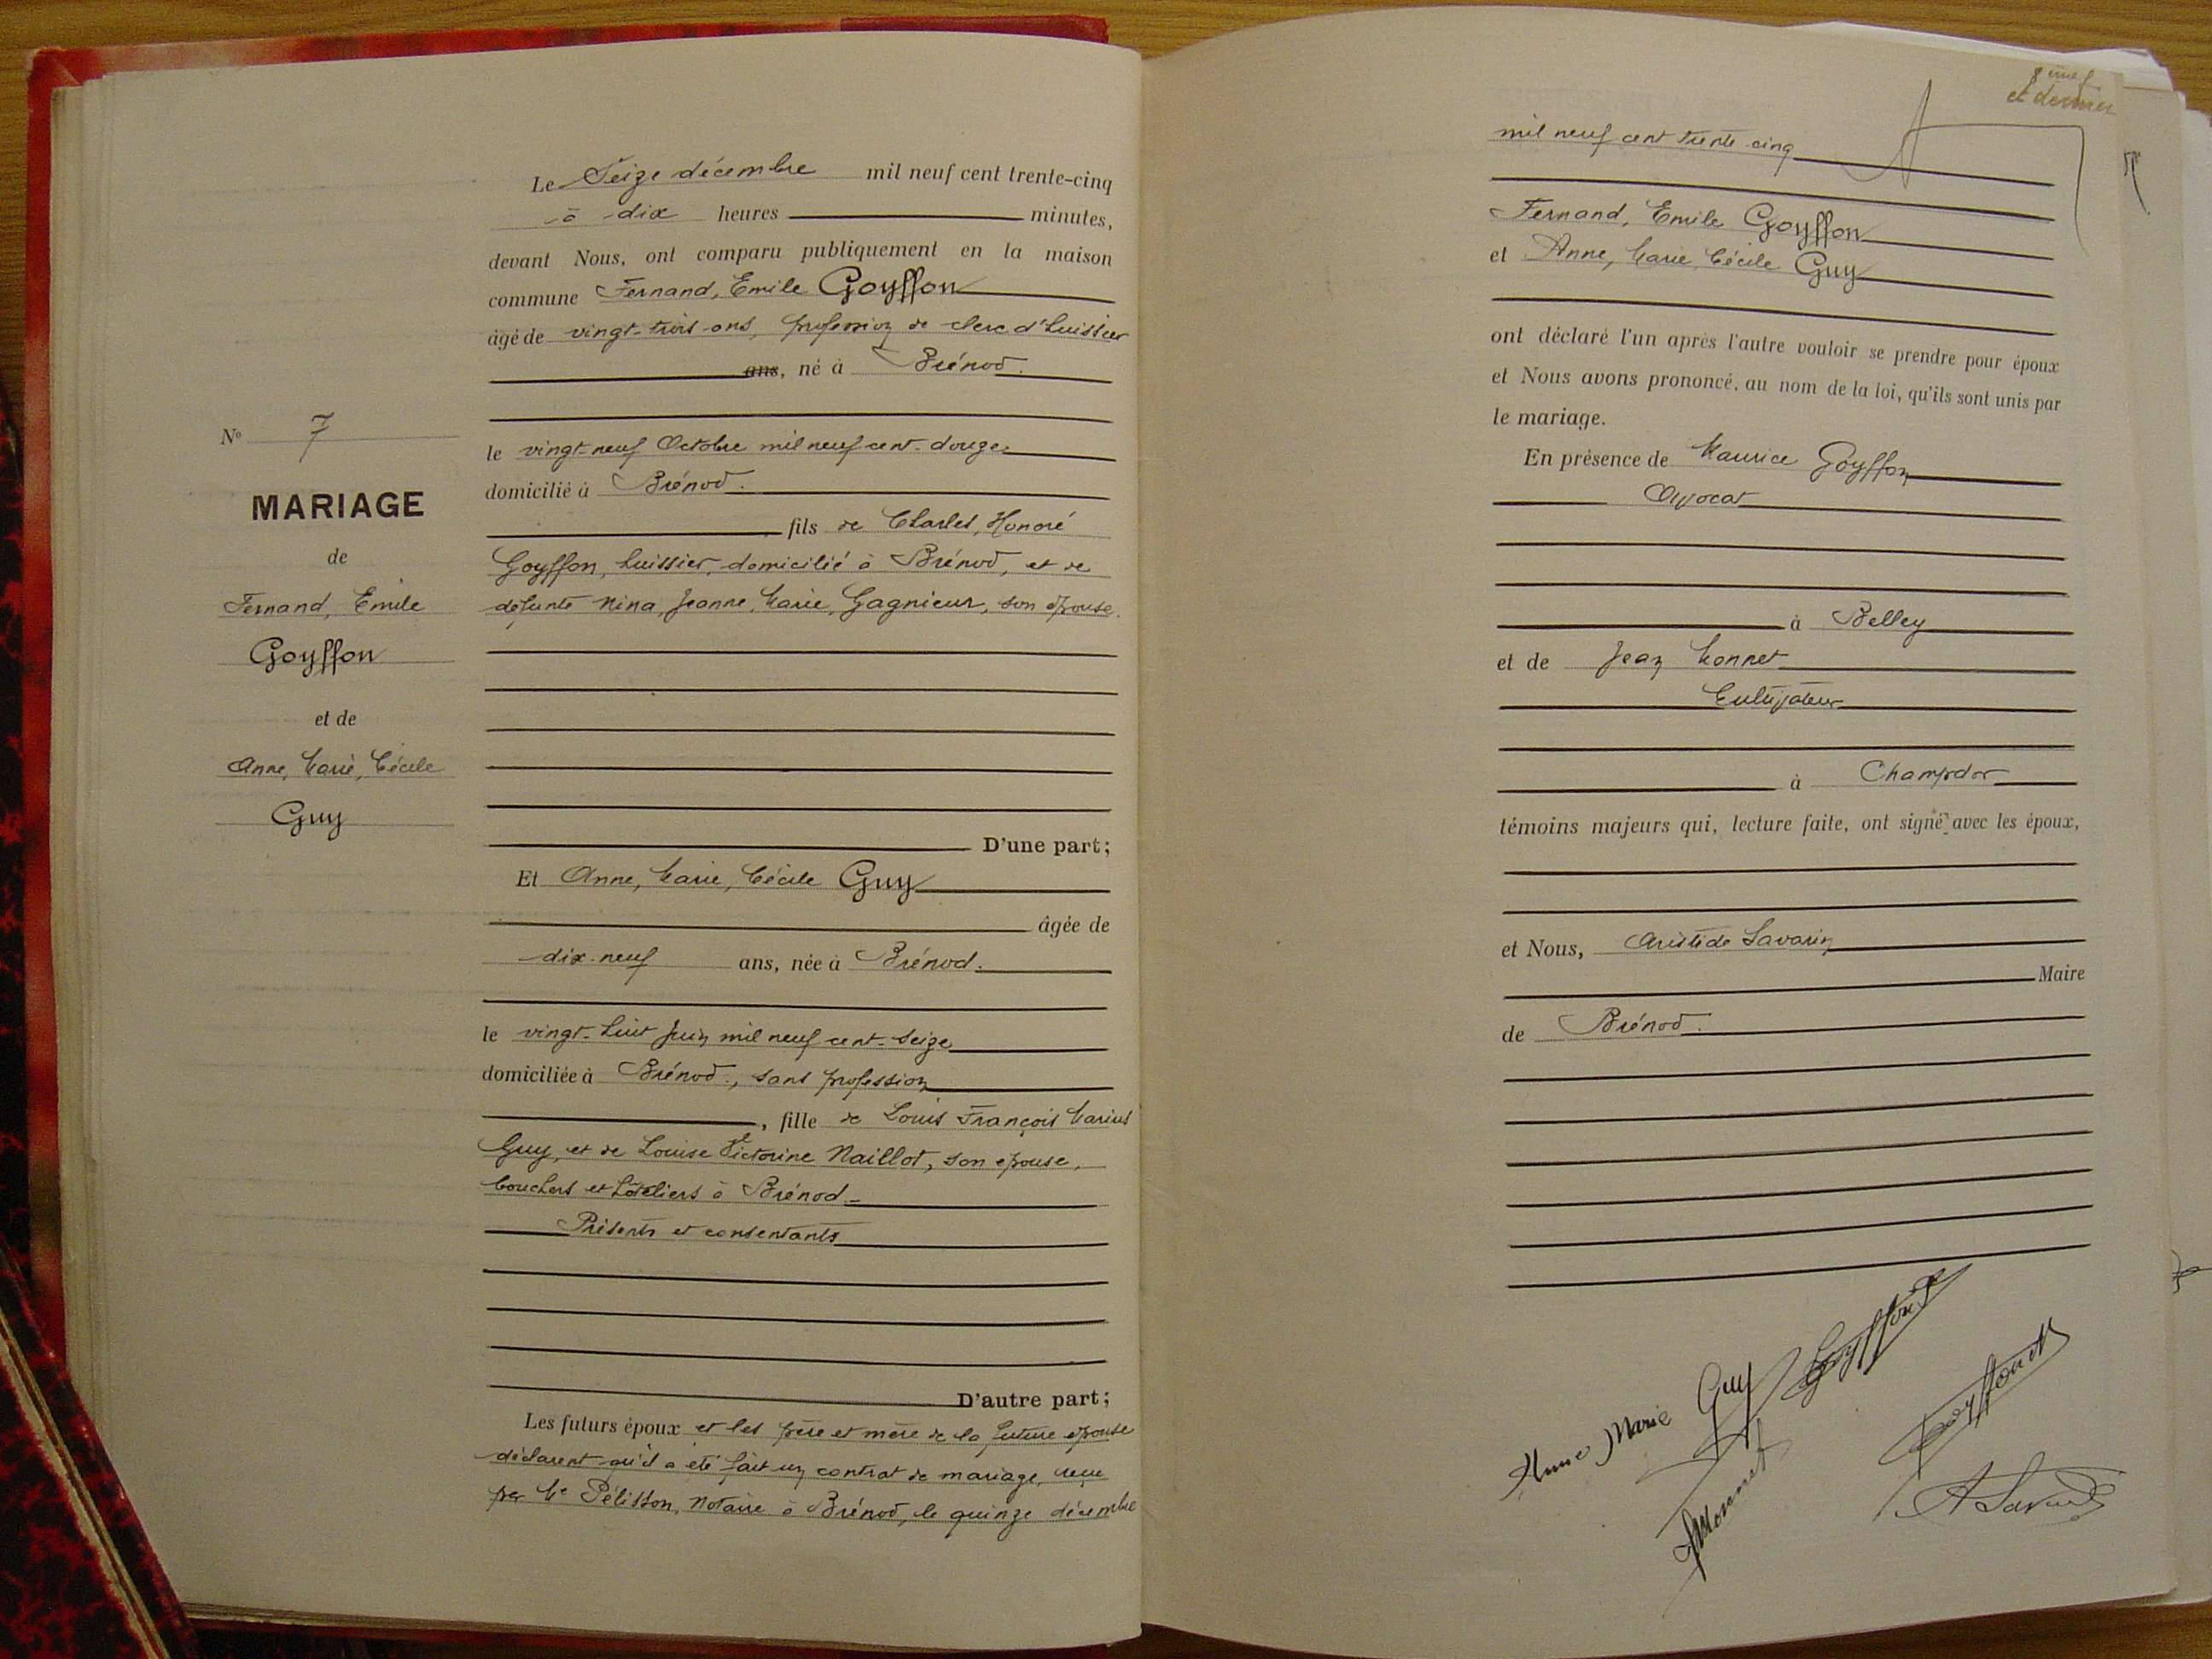 N° 7
MARIAGE
de
Fernand, Emile
Goyffon
et de
Anne, Marie, Cécile
Guy
Le Seize décembre mil neuf cent trente-cinq
à dix heures minutes,
devant Nous, ont comparu publiquement en la maison
commune Fernand, Emile Goyffon
âgé de vingt-trois ans, profession de clerc d'huissier
ans, né à Brénod.
le vingt-neuf Octobre mil neuf cent-douze
domicilié à Brénod.
fils de Charles, Honoré
Goyffon, huissier, domicilié à Brénod, et de
défunte Nina, Jeanne, Marie, Gagnieur, son épouse.
D'une part;
Et Anne, Marie, Cécile Guy
âgée de
dix-neuf ans, née à Brénod.
le vingt-huit Juin mil neuf cent-seize
domiciliée à Brénod., sans profession
, fille de Louis François Marius
Guy, et de Louise Victorine Naillot, son épouse,
bouchers et hôteliers à Brénod
Présents et consentants
D'autre part;
Les futurs époux et les père et mère de la future épouse
déclarent qu'il a été fait un contrat de mariage, reçu
par Me Pélisson, Notaire à Brénod, le quinze décembre
et dernier
mil neuf cent trente-cinq
Fernand, Emile Goyffon
et Anne, Marie, Cécile Guy
ont déclaré l'un après l'autre vouloir se prendre pour époux
et Nous avons prononcé, au nom de la loi, qu'ils sont unis par
le mariage.
En présence de Maurice Goyffon
Avocat
à Belley
et de Jean Monnet
Cultivateur
à Champdor
témoins majeurs qui, lecture faite, ont signé avec les époux,
et Nous, Aristide Savarin
Maire
de Brénod.
Anne Marie Guy Goyffon
Goyffon
JMonnet
A Savarin